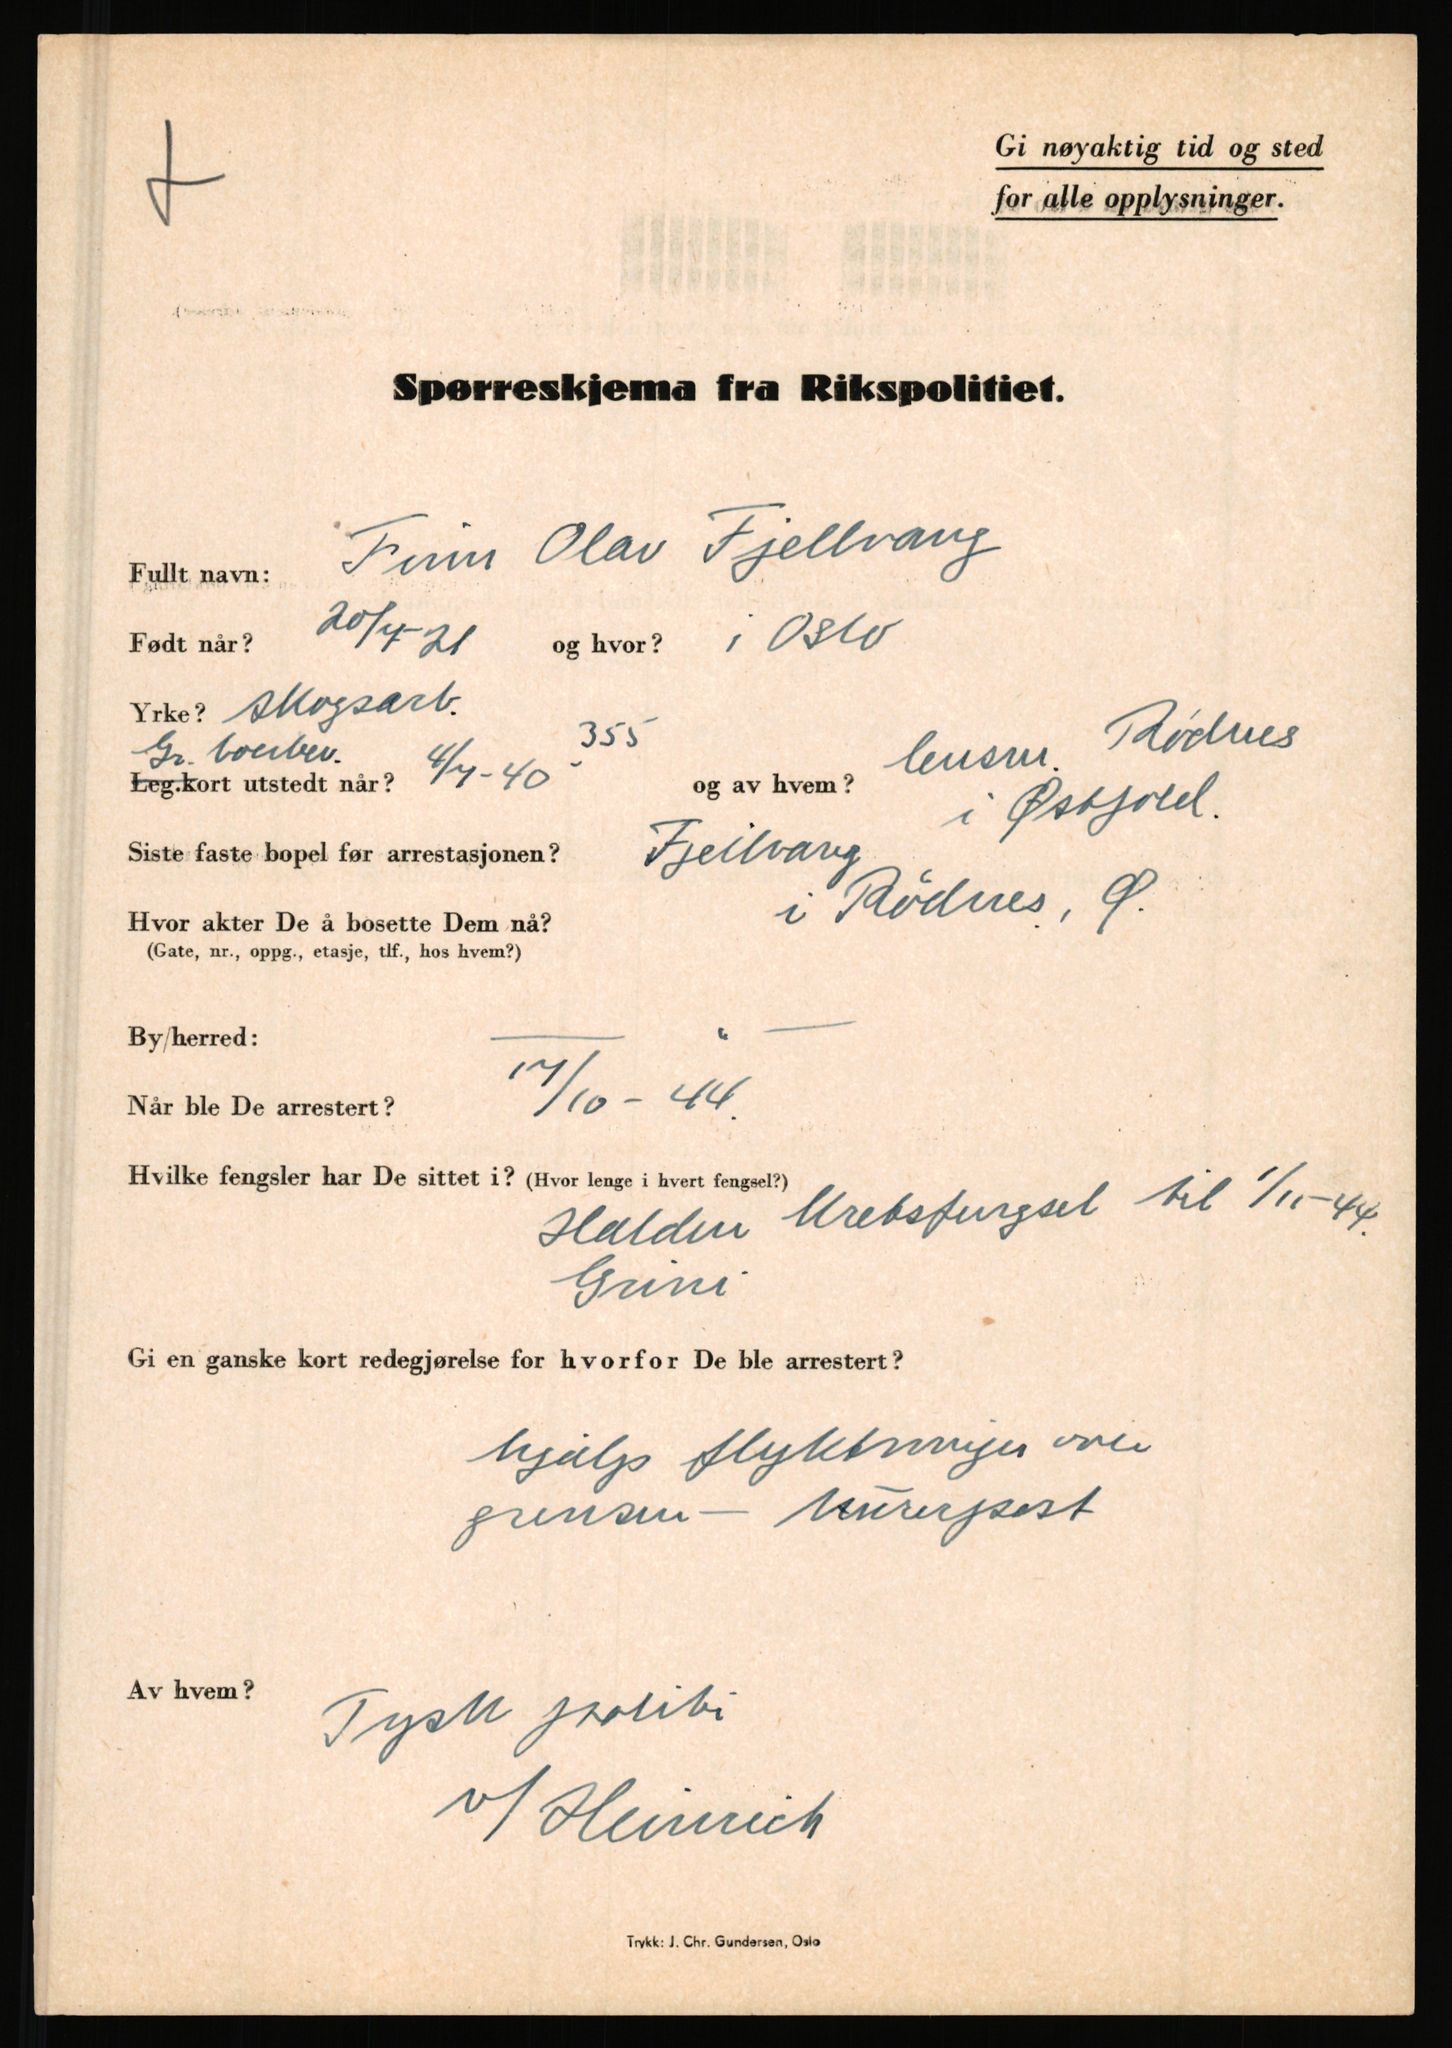 Gi nøyaktig tid og sted
for alle opplysninger.
Spørreskjema fra Rikspolitiet.
Fullt navn: Finn Olav Fjellvang
Født når? 20/4-21 og hvor? i Oslo
Yrke? skogsarb.
Gr. boerbev. 355
Leg.kort utstedt når? 4/4-40 - og av hvem? lensm. Rødnes
i Østfold.
Siste faste bopel før arrestasjonen? Fjellvang
i Rødnes, Ø.
Hvor akter De å bosette Dem nå?
(Gate, nr., oppg., etasje, tlf., hos hvem?)
By/herred: — " —
Når ble De arrestert? 17/10-44.
Hvilke fengsler har De sittet i? (Hvor lenge i hvert fengsel?)
Halden kretsfengsel til 1/11-44.
Grini
Gi en ganske kort redegjørelse for hvorfor De ble arrestert?
hjalp flyktninger over
grensen — kurerpost
Av hvem? Tysk politi
v/ Heinrich
Trykk: J. Chr. Gundersen, Oslo